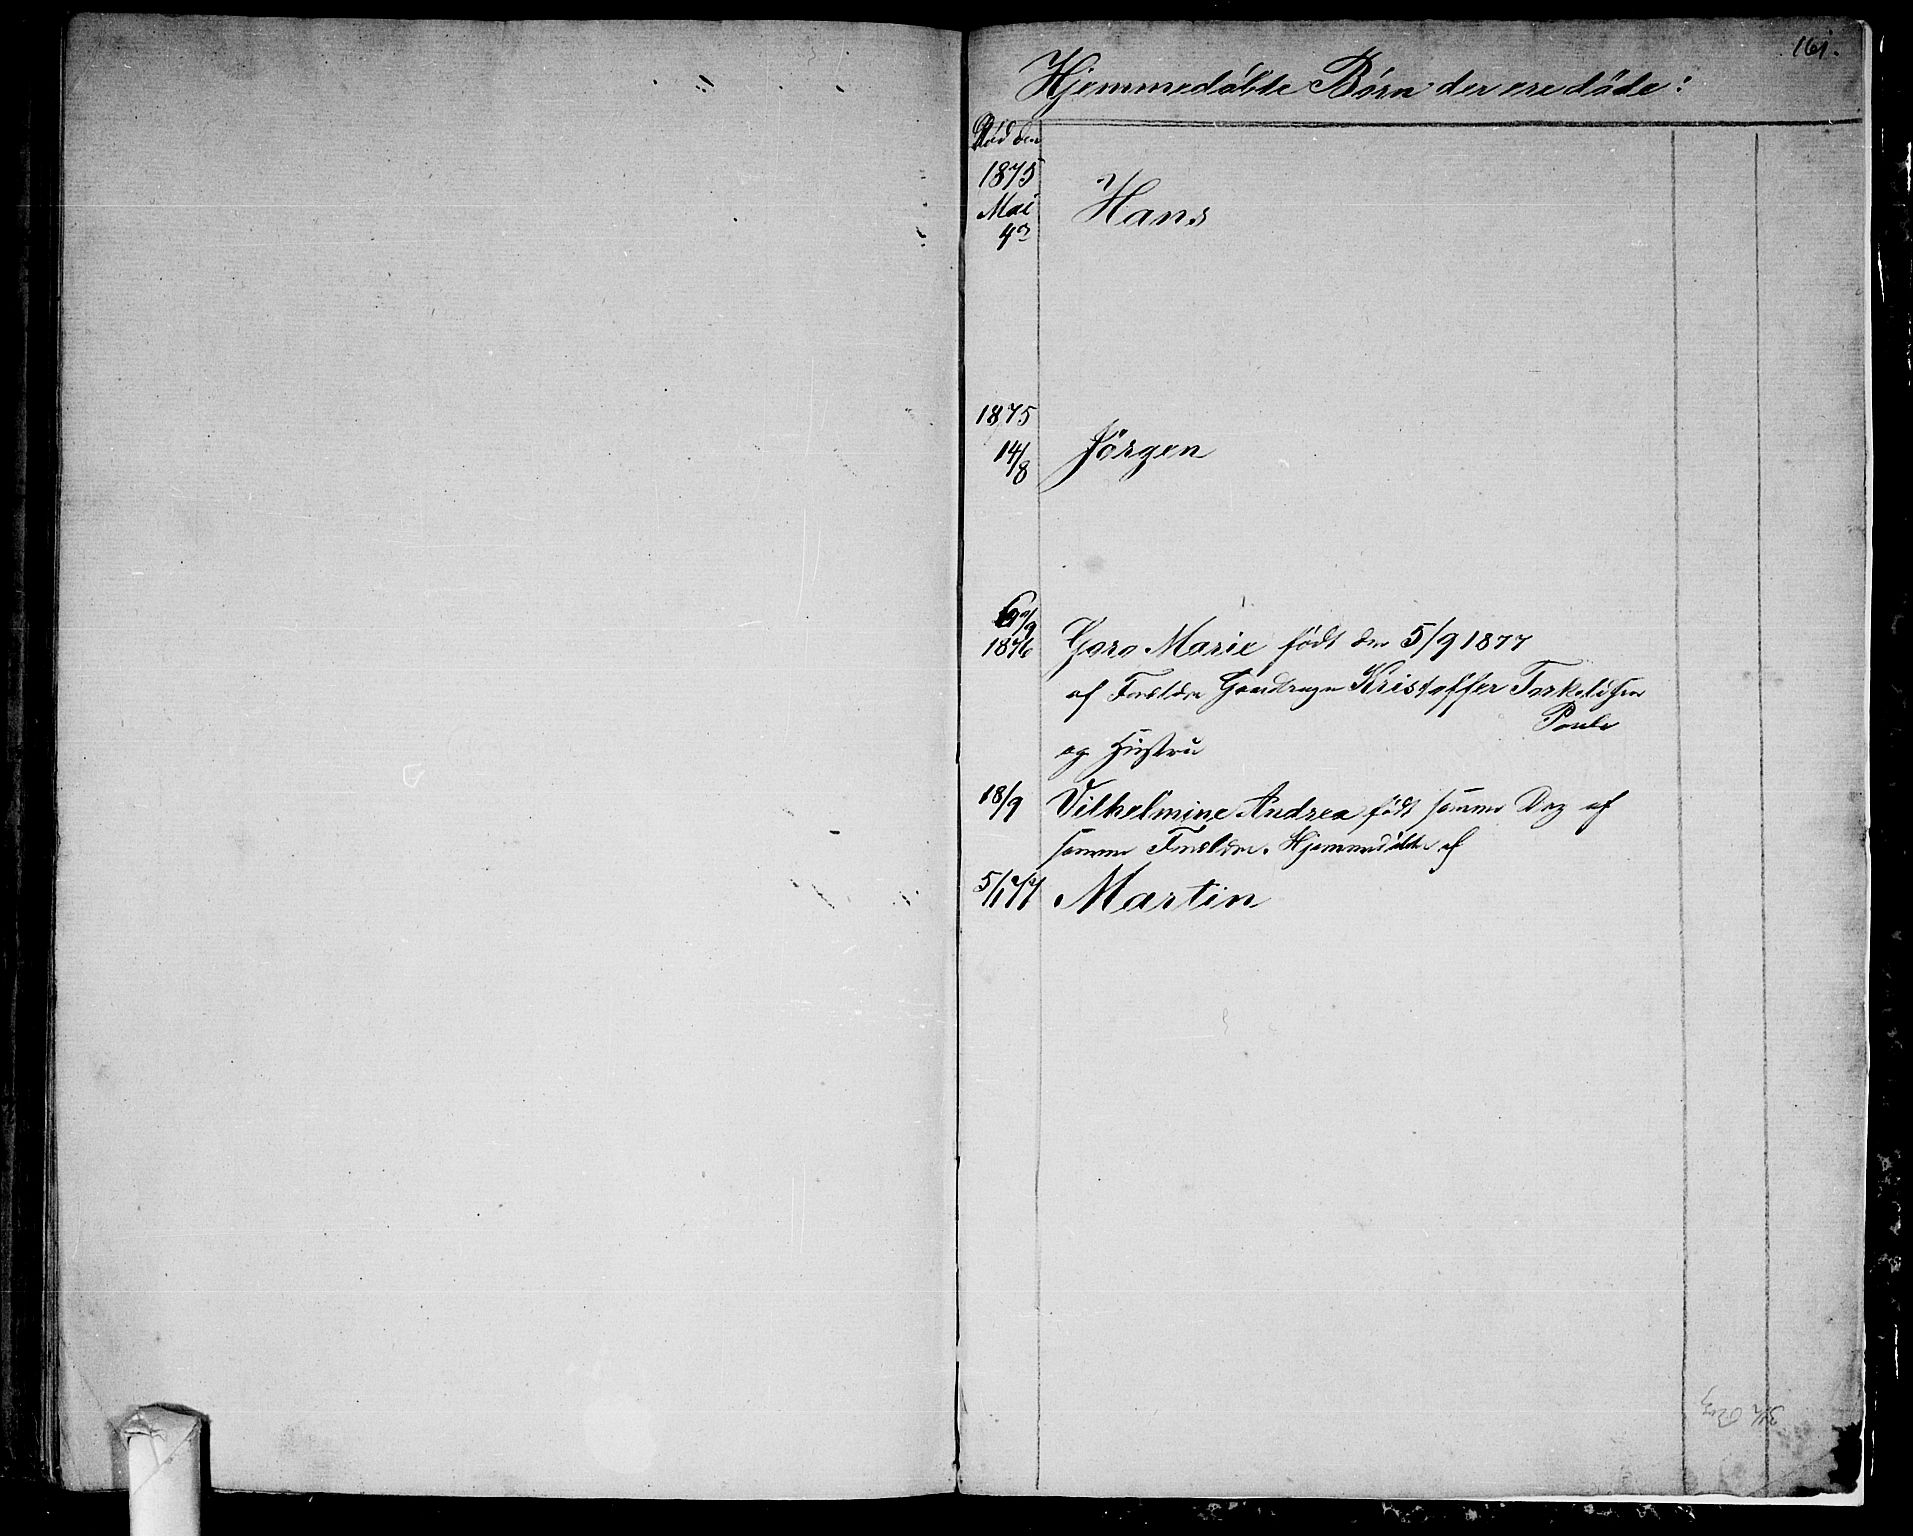 161.
Hjemmedøbte Børn der ere døde:
Død den
1875
Mai
4de
Hans
1875
14/8
Jørgen
1876
Marie født den 5/9 1877
af Forældre Gaardmager Kristoffer Torkeldsen
og Hustru
18/9 Vilhelmine Andrea født samme Dag af
samme Forældre. Hjemmedøbte af
Martin